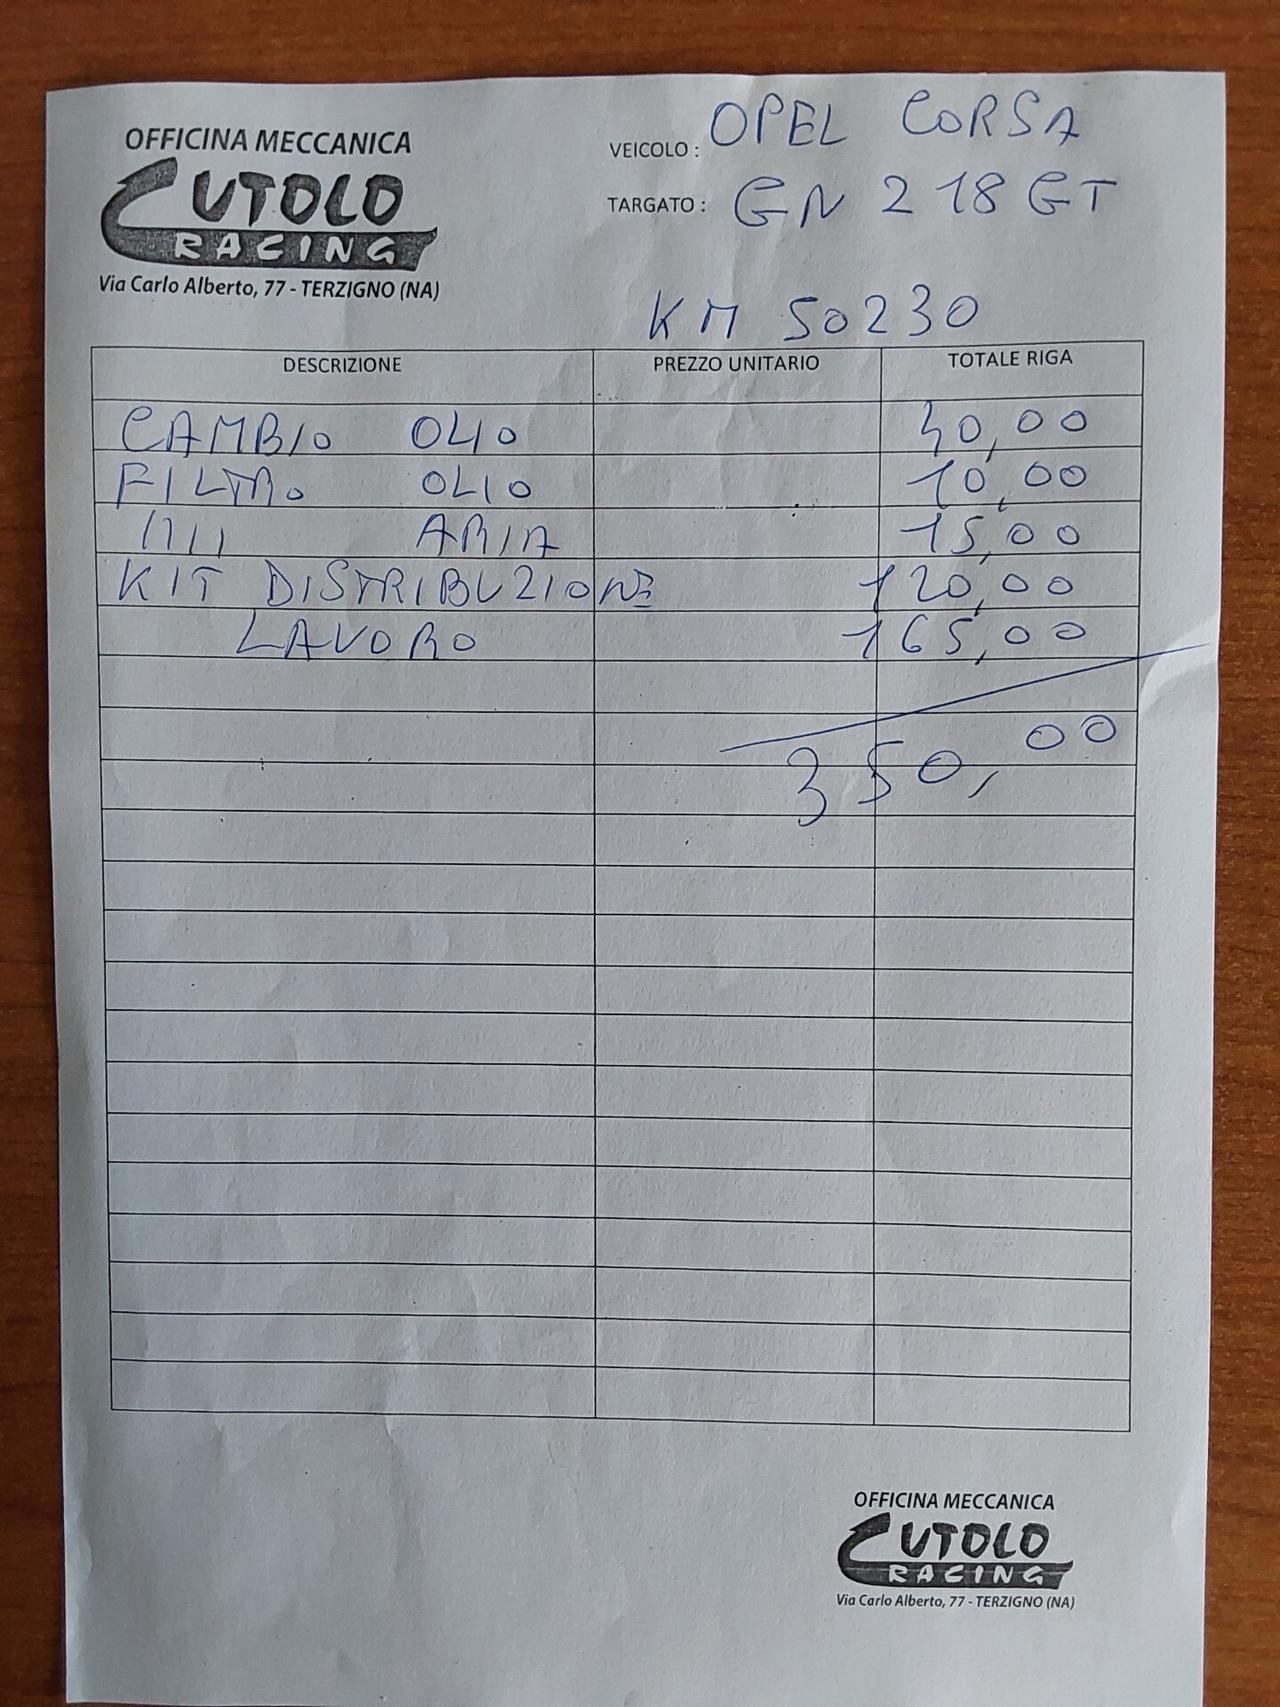 OFFICINA MECCANICA
CUTOLO
RACING
Via Carlo Alberto, 77 - TERZIGNO (NA)
VEICOLO : OPEL CORSA
TARGATO : GN 218 GT
KM 50230
DESCRIZIONE PREZZO UNITARIO TOTALE RIGA
CAMBIO OLIO 40,00
FILTRO OLIO 10,00
'''' ARIA 15,00
KIT DISTRIBUZIONE 120,00
LAVORO 165,00
350,00
OFFICINA MECCANICA
CUTOLO
RACING
Via Carlo Alberto, 77 - TERZIGNO (NA)